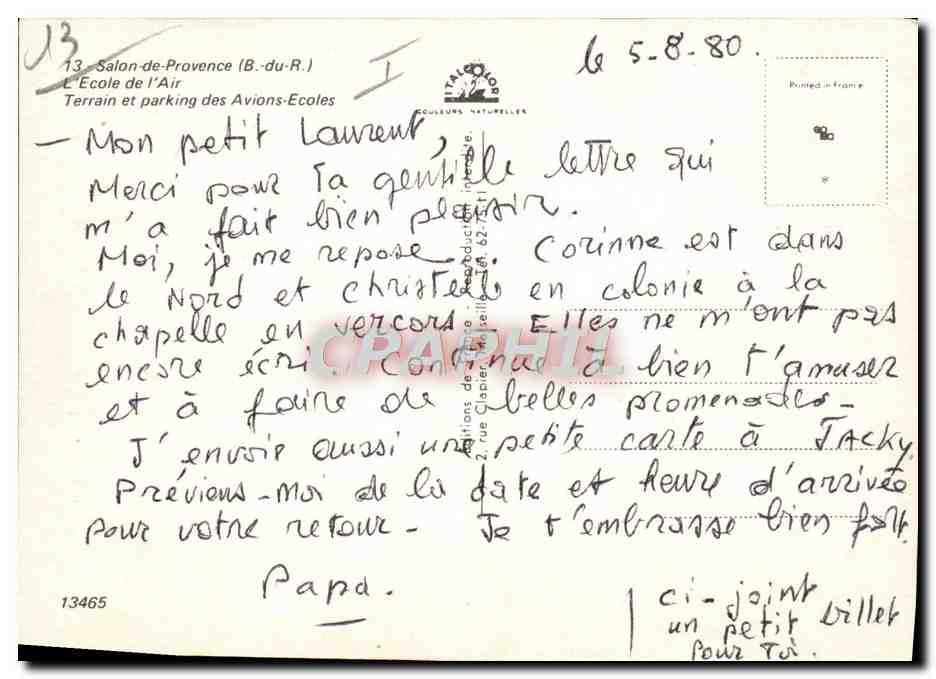 13
13 - Salon-de-Provence (B.-du-R.)
L'Ecole de l'Air
Terrain et parking des Avions-Ecoles
I
ITALCOLOR
COULEURS NATURELLES
le 5-8-80.
Printed in France
*
- Mon petit Laurent,
Merci pour ta gentille lettre qui
m'a fait bien plaisir.
Moi, je me repose. Corinne est dans
le Nord et Christelle en colonie à la
chapelle en vercors - Elles ne m'ont pas
encore écrit. Continue à bien t'amuser
et à faire de belles promenades -
J'envoie aussi une petite carte à JACKY.
Préviens-moi de la date et heure d'arrivée
pour votre retour - Je t'embrasse bien fort.
Papa.
ci-joint
un petit billet
pour Toi.
13465
Editions de - Reproduction interdite.
2, rue Clapier, Marseille. Tél. 62-75-11
CPAPHIL